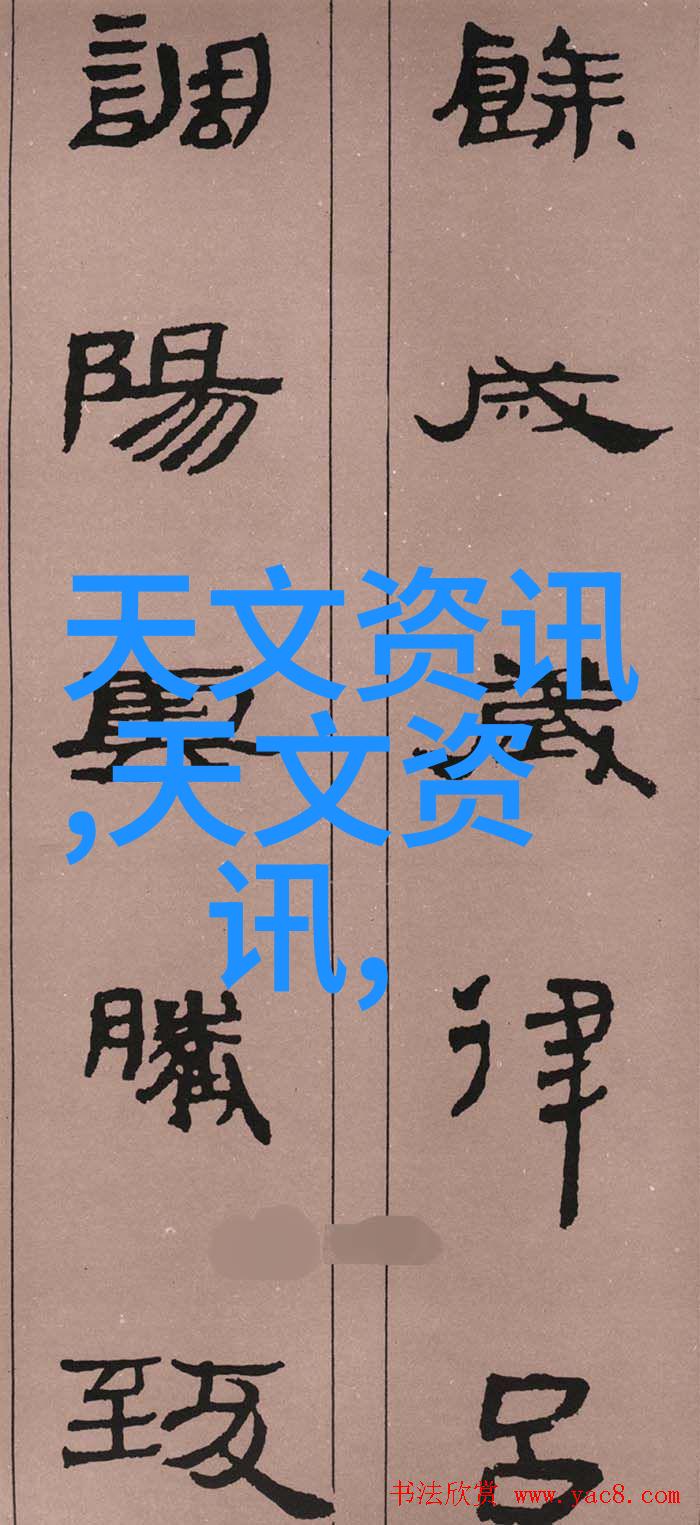 餘成歲律呂
調陽雲騰致
天文资讯
,天文资
讯,
书法欣赏 www.yac8.com